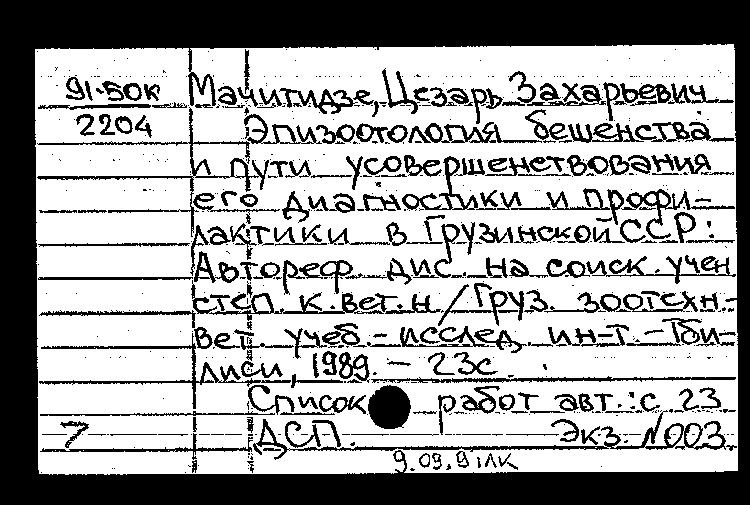 91-50к Мачитидзе, Цезарь Захарьевич
2204 Эпизоотология бешенства
и пути усовершенствования
его диагностики и профи-
лактики в Грузинской ССР:
Автореф. дис. на соиск. учен
степ. к.вет.н/Груз. зоотехн.-
вет. учеб.-исслед. ин-т.-Тби-
лиси, 1989. - 23с.
Список работ авт.: с 23
7 ДСП. Экз. №003
9.09.91